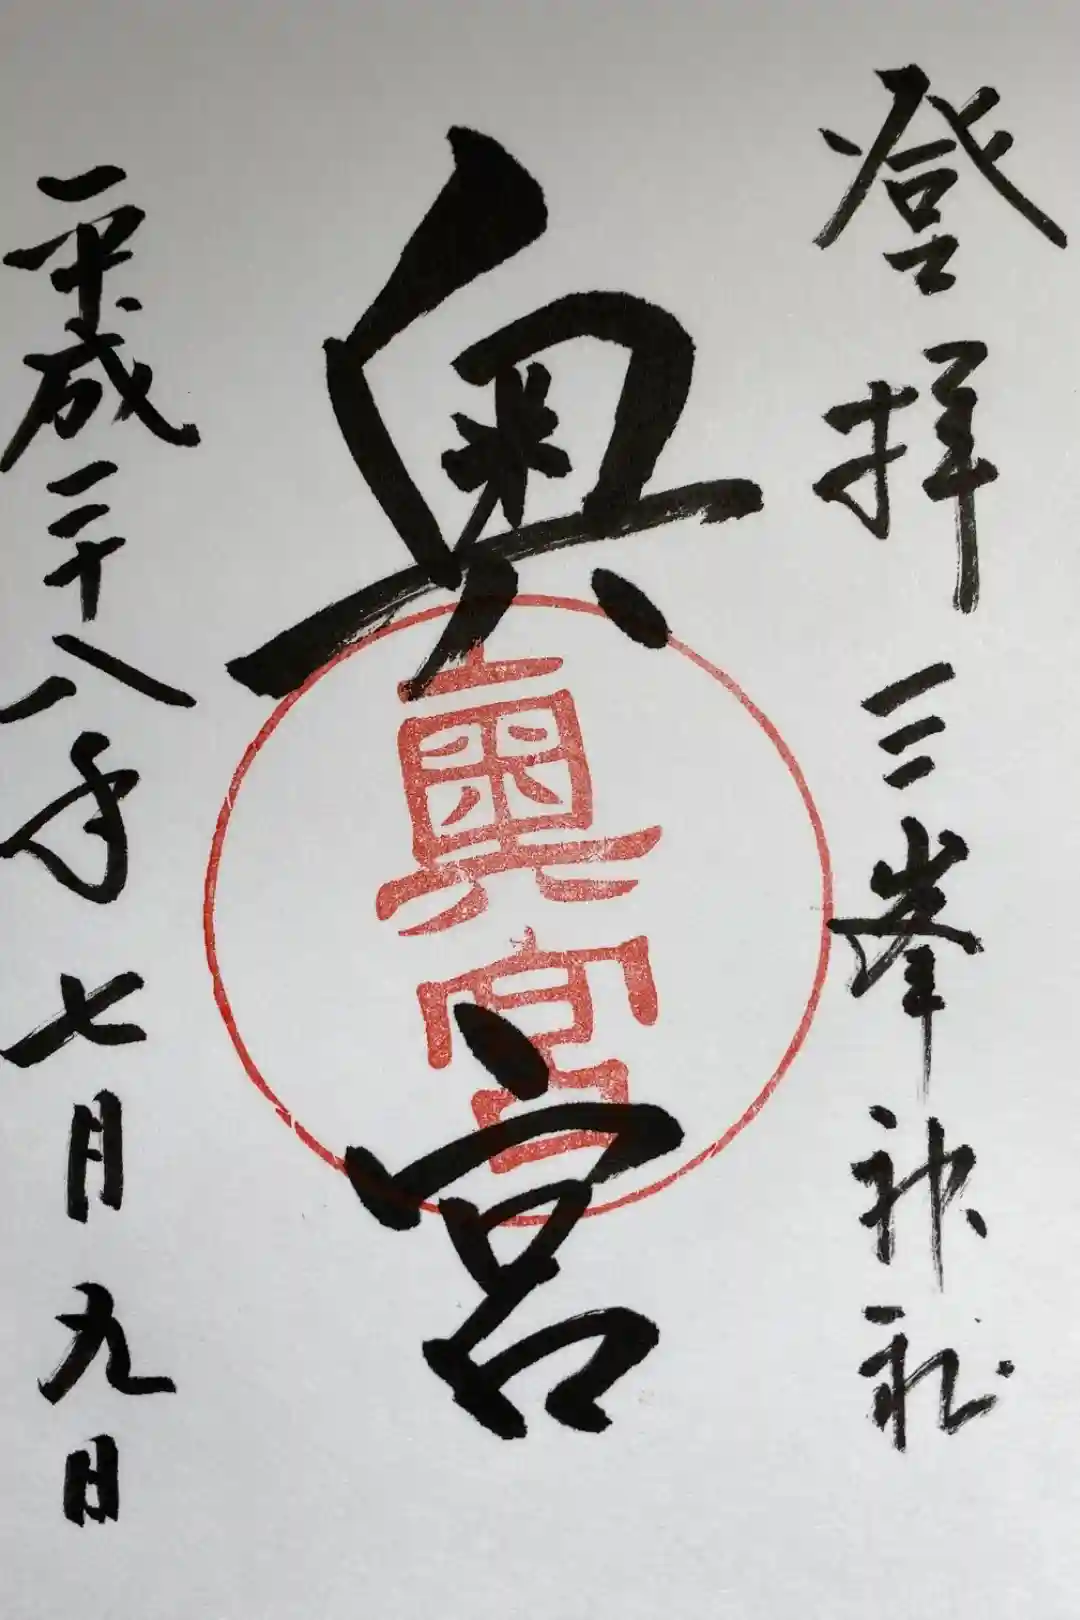 登拝 三峯神社
奥宮
奥宮
平成二十八年七月九日